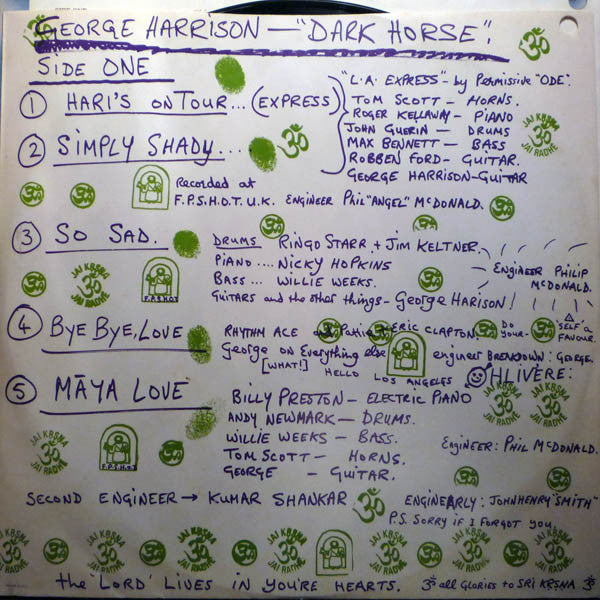 GEORGE HARRISON — "DARK HORSE".
SIDE ONE
① HARI'S ON TOUR... (EXPRESS)
"L.A. EXPRESS" - by Permissive "ODE".
TOM SCOTT — HORNS.
ROGER KELLAWAY — PIANO
JOHN GUERIN — DRUMS
MAX BENNETT — BASS
ROBBEN FORD — GUITAR.
GEORGE HARRISON - GUITAR
② SIMPLY SHADY...
Recorded at
F.P.S.H.O.T. U.K. ENGINEER PHIL "ANGEL" McDONALD.
③ SO SAD.
DRUMS RINGO STARR + JIM KELTNER.
PIANO .... NICKY HOPKINS
BASS ... WILLIE WEEKS.
GUITARS and the other things - GEORGE HARISON!
ENGINEER PHILIP
McDONALD.
④ BYE BYE, LOVE
RHYTHM ACE and Pattie + ERIC CLAPTON.
DO YOUR- SELF A
FAVOUR.
George on Everything else
[WHAT!] HELLO LOS ANGELES
engineer BREAKDOWN: GEORGE.
OHLIVERE:
⑤ MĀYA LOVE
BILLY PRESTON — ELECTRIC PIANO
ANDY NEWMARK — DRUMS.
WILLIE WEEKS — BASS.
TOM SCOTT — HORNS.
GEORGE — GUITAR.
ENGINEER: PHIL McDONALD.
SECOND ENGINEER → KUMAR SHANKAR
ENGINEARLY: JOHNHENRY "SMITH"
P.S. SORRY IF I FORGOT YOU.
the 'LORD' LIVES IN YOU'RE HEARTS.
ॐ all GLORIES to SRI KṚṢNA ॐ
JAI KṚṢNA
ॐ
JAI RADHE
F.P.S.H.O.T.